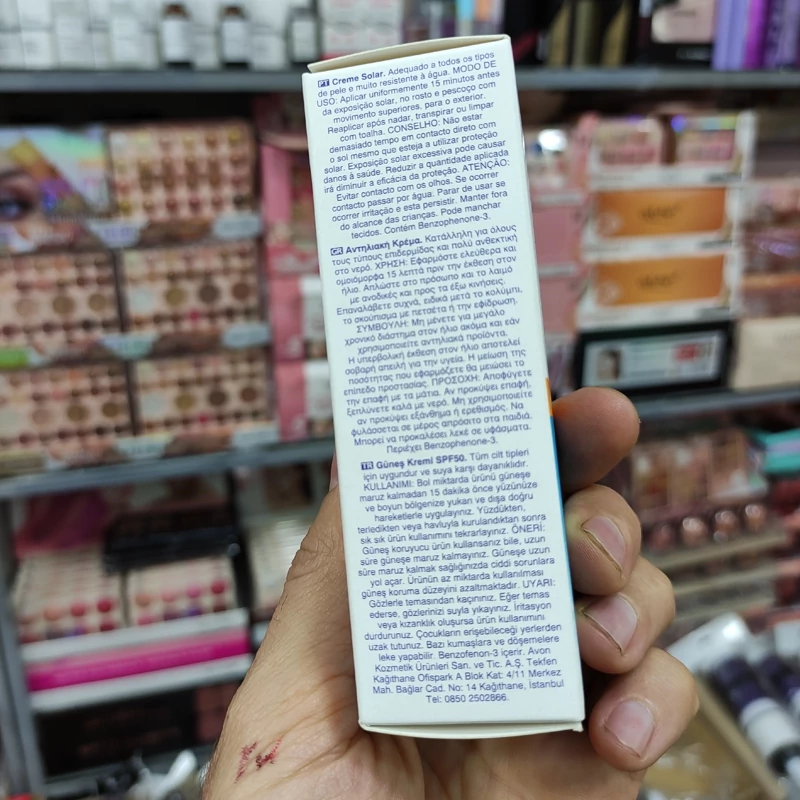 PT Creme Solar. Adequado a todos os tipos
de pele e muito resistente à água. MODO DE
USO: Aplicar uniformemente 15 minutos antes
da exposição solar, no rosto e pescoço com
movimento superiores, para o exterior.
Reaplicar após nadar, transpirar ou limpar
com toalha. CONSELHO: Não estar
demasiado tempo em contacto direto com
o sol mesmo que esteja a utilizar protecção
solar. Exposição solar excessiva pode causar
danos à saúde. Reduzir a quantidade aplicada
irá diminuir a eficácia da proteção. ATENÇÃO:
Evitar contacto com os olhos. Se ocorrer
contacto passar por água. Parar de usar se
ocorrer irritação e esta persistir. Manter fora
do alcance das crianças. Pode manchar
tecidos. Contém Benzophenone-3.
GR Αντηλιακή Κρέμα. Κατάλληλη για όλους
τους τύπους επιδερμίδας και πολύ ανθεκτική
στο νερό. ΧΡΗΣΗ: Εφαρμόστε ελεύθερα και
ομοιόμορφα 15 λεπτά πριν την έκθεση στον
ήλιο. Απλώστε στο πρόσωπο και το λαιμό
με ανοδικές και προς τα έξω κινήσεις.
Επαναλάβετε συχνά, ειδικά μετά το κολύμπι,
το σκούπισμα με πετσέτα ή την εφίδρωση.
ΣΥΜΒΟΥΛΗ: Μη μένετε για μεγάλο
χρονικό διάστημα στον ήλιο ακόμα και εάν
χρησιμοποιείτε αντηλιακά προϊόντα.
Η υπερβολική έκθεση στον ήλιο αποτελεί
σοβαρή απειλή για την υγεία. Η μείωση της
ποσότητας που εφαρμόζετε θα μειώσει το
επίπεδο προστασίας. ΠΡΟΣΟΧΗ: Αποφύγετε
την επαφή με τα μάτια. Αν προκύψει επαφή,
ξεπλύνετε καλά με νερό. Μη χρησιμοποιείτε
αν προκύψει εξάνθημα ή ερεθισμός. Να
φυλάσσεται σε μέρος απρόσιτο στα παιδιά.
Μπορεί να προκαλέσει λεκέ σε υφάσματα.
Περιέχει Benzophenone-3.
TR Güneş Kremi SPF50. Tüm cilt tipleri
için uygundur ve suya karşı dayanıklıdır.
KULLANIMI: Bol miktarda ürünü güneşe
maruz kalmadan 15 dakika önce yüzünüze
ve boyun bölgenize yukarı ve dışa doğru
hareketlerle uygulayınız. Yüzdükten,
terledikten veya havluyla kurulandıktan sonra
sık sık ürün kullanımını tekrarlayınız. ÖNERİ:
Güneş koruyucu ürün kullansanız bile, uzun
süre güneşe maruz kalmayınız. Güneşe uzun
süre maruz kalmak sağlığınızda ciddi sorunlara
yol açar. Ürünün az miktarda kullanılması
güneş koruma düzeyini azaltmaktadır. UYARI:
Gözlerle temasından kaçınınız. Eğer temas
ederse, gözlerinizi suyla yıkayınız. İritasyon
veya kızarıklık oluşursa ürün kullanımını
durdurunuz. Çocukların erişebileceği yerlerden
uzak tutunuz. Bazı kumaşlara ve döşemelere
leke yapabilir. Benzofenon-3 içerir. Avon
Kozmetik Ürünleri San. ve Tic. A.Ş. Tekfen
Kağıthane Ofispark A Blok Kat: 4/11 Merkez
Mah. Bağlar Cad. No: 14 Kağıthane, İstanbul
Tel: 0850 2502866.